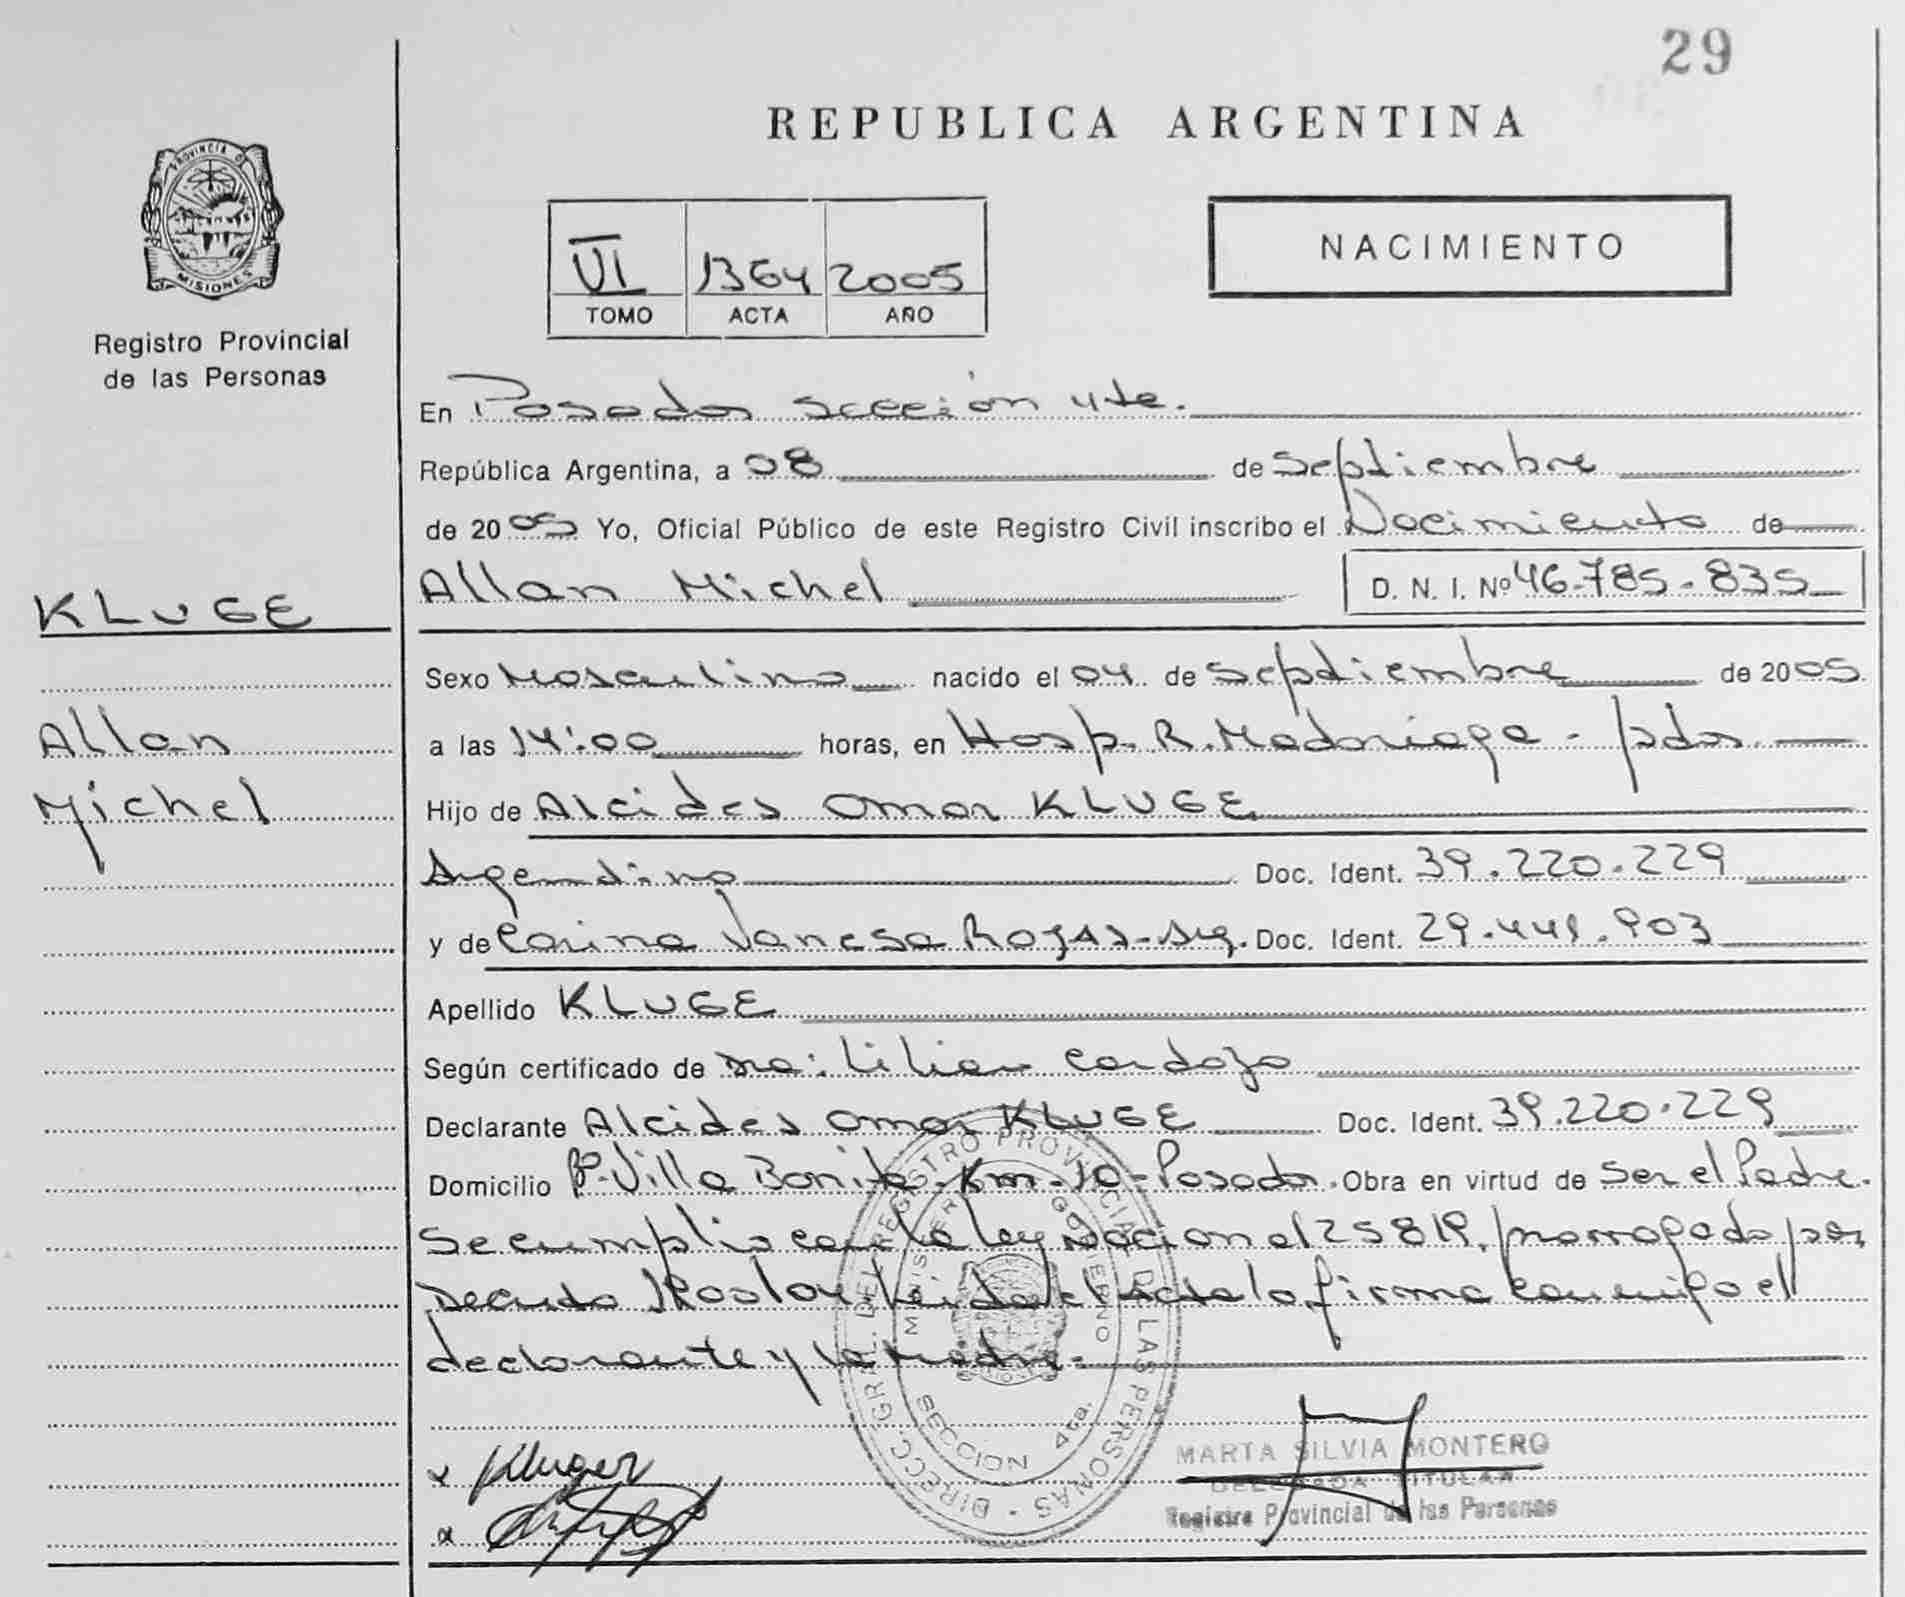 29
REPUBLICA ARGENTINA
PROVINCIA DE
MISIONES
Registro Provincial
de las Personas
VI 1364 2005
TOMO ACTA AÑO
NACIMIENTO
En Posadas sección 4ta.
República Argentina, a 08 de Septiembre
de 2005 Yo, Oficial Público de este Registro Civil inscribo el Nacimiento de
Allan Michel D. N. I. Nº 46-785-835
KLUGE
Allan
Michel
Sexo Masculino nacido el 04 de Septiembre de 2005
a las 14:00 horas, en Hosp. R. Madariaga - pdas.
Hijo de Alcides Omar KLUGE
Argentino Doc. Ident. 39.220.229
y de Carina Vanesa Rojas - Arg. Doc. Ident. 29.441.903
Apellido KLUGE
Según certificado de Lilian Cardozo
Declarante Alcides Omar KLUGE Doc. Ident. 39.220.229
Domicilio Bº Villa Bonita - Km - 10 - Posadas. Obra en virtud de Ser el Padre.
Se cumplio con la ley Nacional 25819, prorrogado por
Decreto Leida el Acta la firma conmigo el
declarante y la Madre.-
DIRECC. GRAL. DEL REGISTRO PROVINCIAL DE LAS PERSONAS
MINISTERIO GOBIERNO
SECCION 4ta.
x Kluger
x
MARTA SILVIA MONTERO
DELEGADA TITULAR
Registro Provincial de las Personas